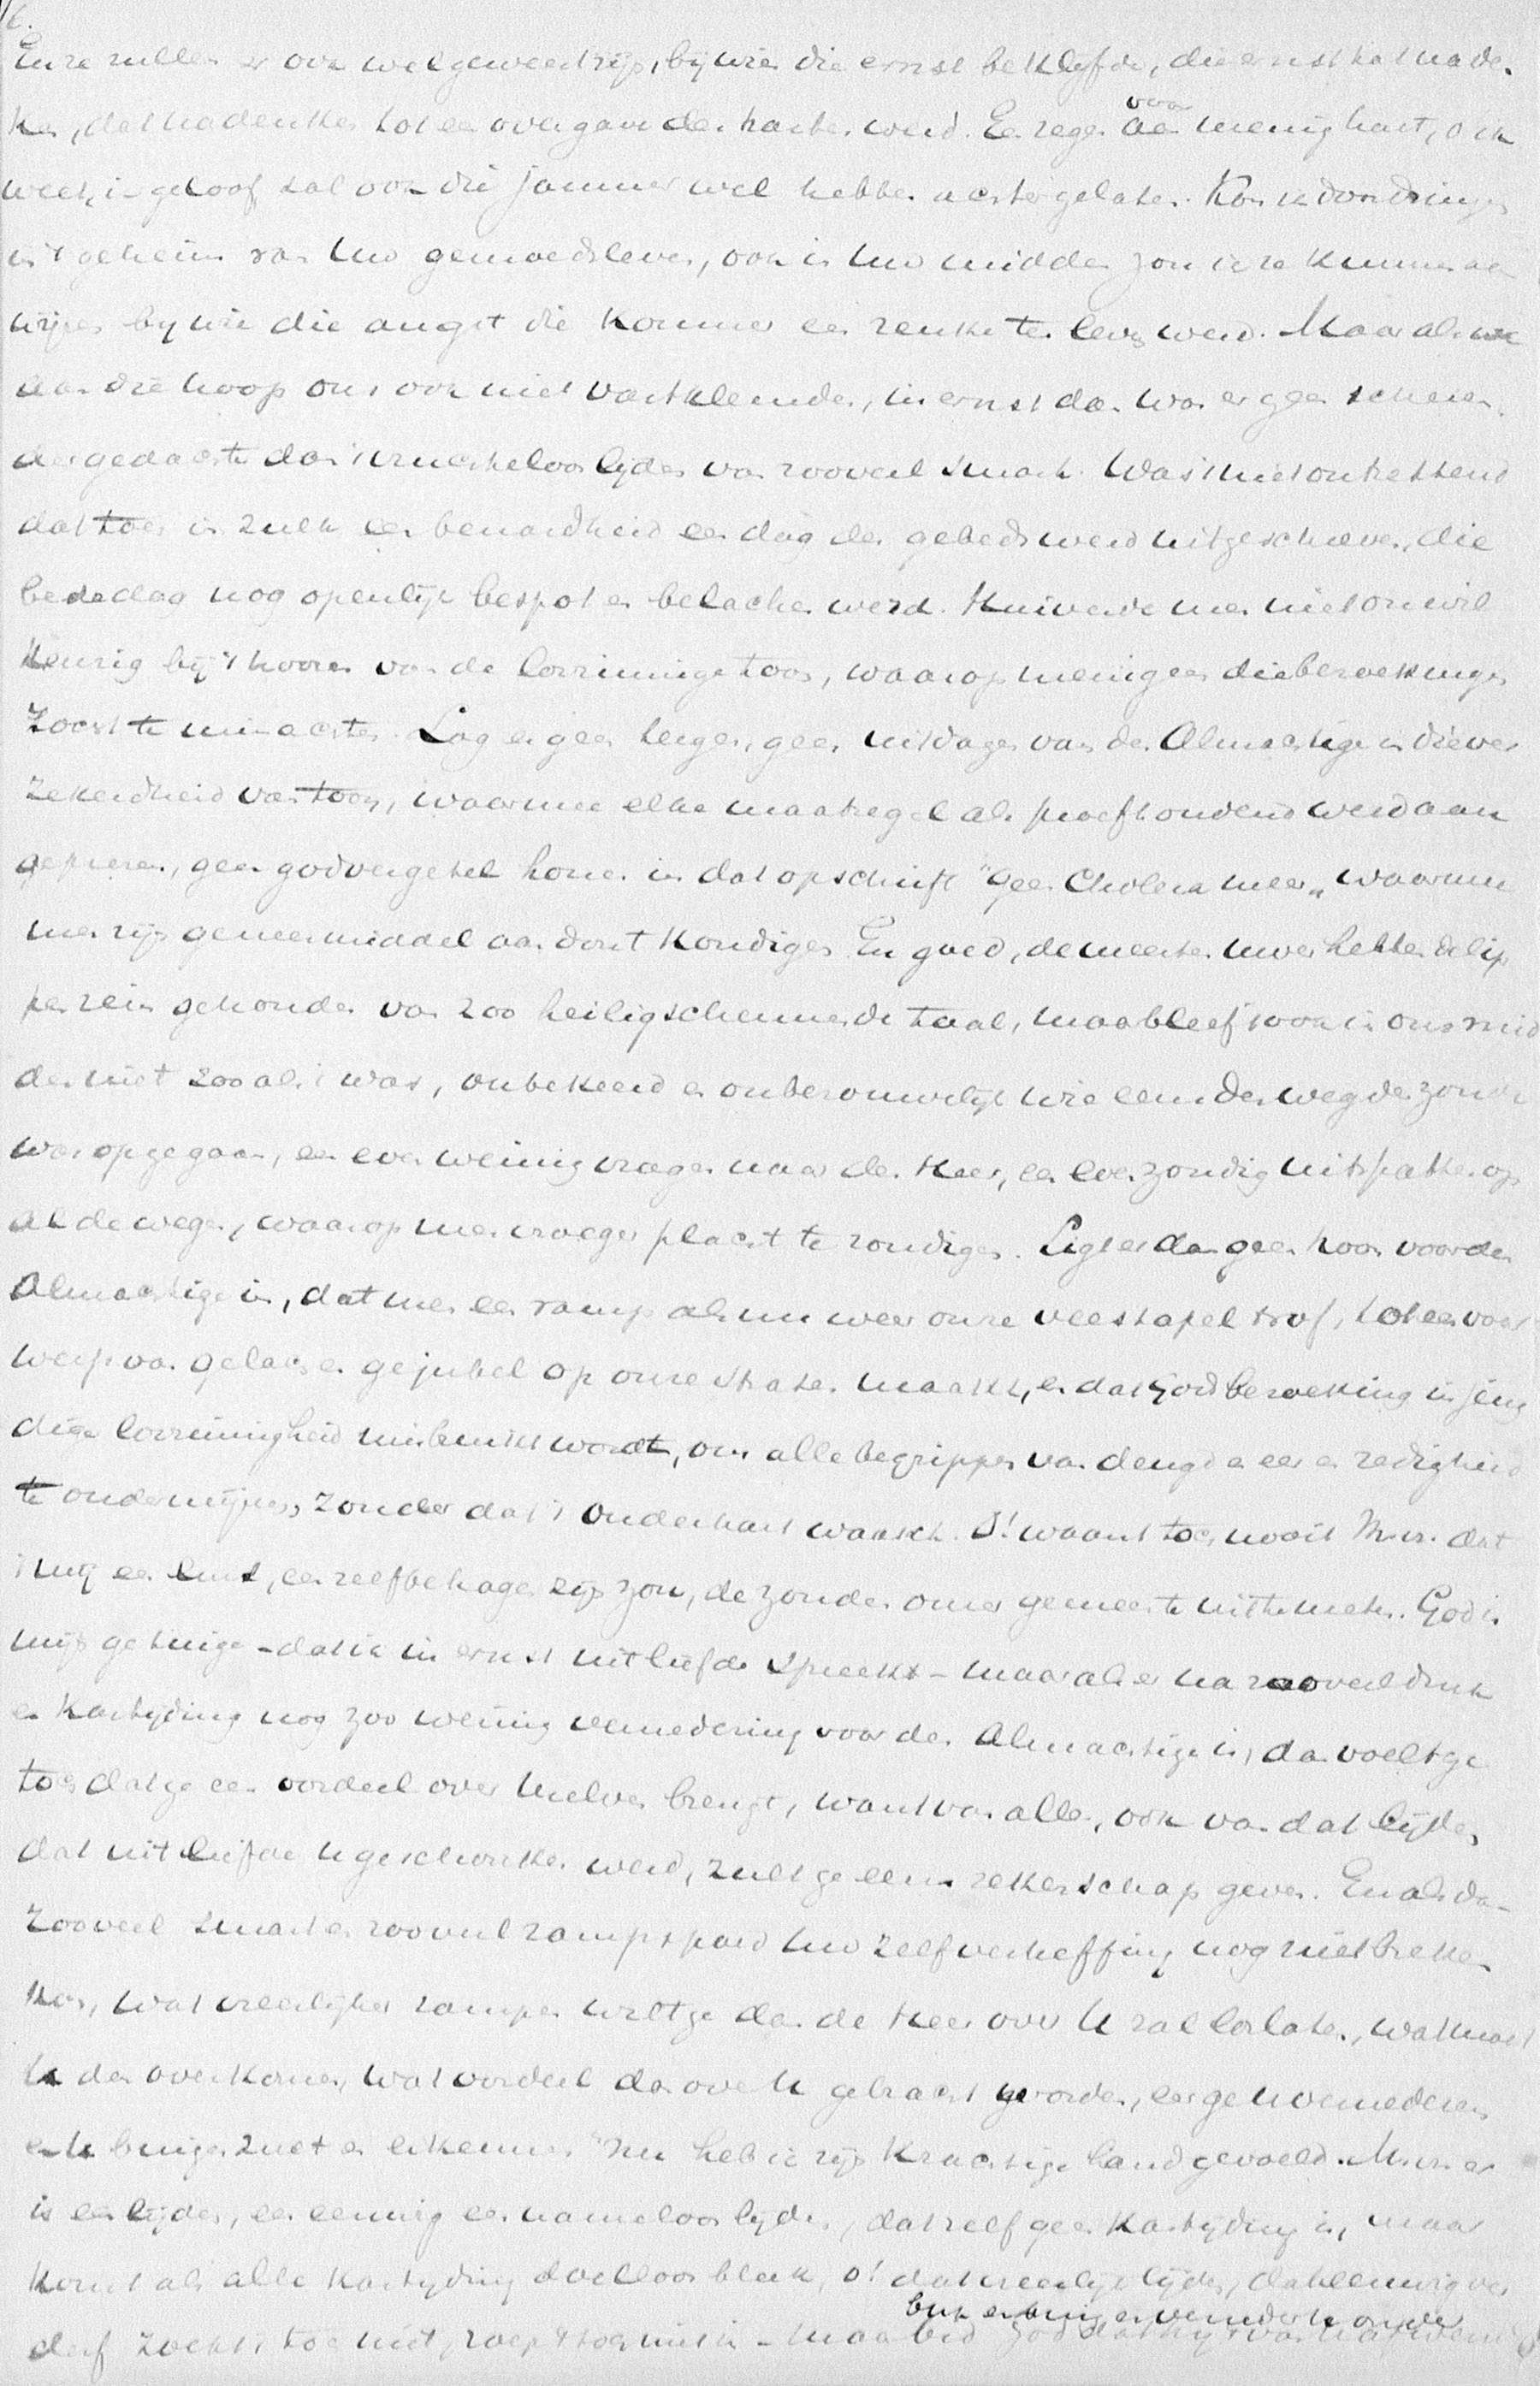 6.
En ze zullen er ook wel geweest zijn, bij wien die ernst beklijfde, die ernst tot naden-
ken, dat nadenken tot een overgave des harten werd. Een zegen voor menig hart, o ik
weet, in geloof zal ook die jammer wel hebben achtergelaten. Kon ik doordringen
in 't geheim van Uw gemoedsleven, ook in Uw midden zou ik ze kunnen aan
wijzen bij wie die angst die kommer een zenuk ten leven werd. Maar als we
aan die hoop ons ook niet vastklemden, in ernst dan was er geen
der gedachte dan 't vruchteloos lijden van zooveel smart. Was 't niet ontzettend
dat toen in zulk een benardheid een dag des gebeds werd uitgeschreven, die
bededag nog openlijk bespot en belachen werd. Huiverde men niet onwil
keurig bij 't hooren van de lorrinnige toon, waarop menigeen die bezoekingen
zocht te minachten. Lag er geen tergen, geen uitdagen van den Almachtige in die ver
zekerdheid van toon, waarmee elke maatregel als proefhoudend werd aan
geprezen, geen godvergeten honen in dat opschrift "geen Cholera meer" waarmee
men zijn geneesmiddel aan dorst kondigen. En goed, de meesten uwer hebben de lip
pen rein gehouden van zoo heiligschennende taal, maar bleef 't ook in ons mid
den niet zooals 't was, onbekeerd en onberouwelijk wie eens den weg der zonde
was opgegaan, een even weinig vragen naar den Heer, een even zondig uitspatten op
al de wegen, waarop men vroeger placht te zondigen. Ligt er dan geen hoon voor den
Almachtige in, dat men een ramp als nu weer onze veestapel trof, tot een voor
werp van gelach en gejubel op onze straten maakt, en dat Gods bezoeking in jeug
dige lorrinnigheid misbruikt wordt, om alle begrippen van deugd en eer en zedigheid
te ondermijnen, zonder dat 't Ouderhart waakt. O! waant toch nooit M.v. dat
't mij een lust, een zelfbehagen zijn zou, de zonden onzer gemeente uit te meten. God is
mijn getuige - dat ik in ernst uit liefde spreek - maar als er na zooveel druk
en kastijding nog zoo weinig vernedering voor den Almachtige is, dan voelt ge
toch dat ge een oordeel over Uzelven brengt, want van alles, ook van dat lijden
dat uit liefde U geschonken werd, zult ge eens rekenschap geven. En als dan
zooveel smart en zooveel rampspoed Uw zelfverheffing nog niet breken
kon, wat vreeslijker rampen wilt ge dan de Heer over U zal loslaten, wat moet
U dan overkomen, wat oordeel dan over U gebracht worden, eer ge U vernederen
en U buigen zult en erkennen "Nu heb ik zijn krachtige hand gevoeld. M.v. er
is een lijden, een eeuwig een nameloos lijden, dat zelf geen kastijding is, maar
komt als alle kastijding doelloos bleek, o! dat vreeslijk lijden, dat eeuwig ver
derf zoekt 't toch niet, roept 't toch niet in - maar bid God dat hij